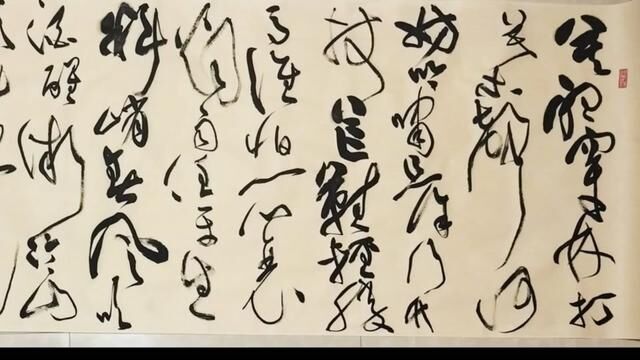 莫听穿林打
叶声何
妨吟啸且徐行竹
杖芒鞋轻胜
马谁怕一蓑
烟雨任平生
料峭春风吹
酒醒微冷山